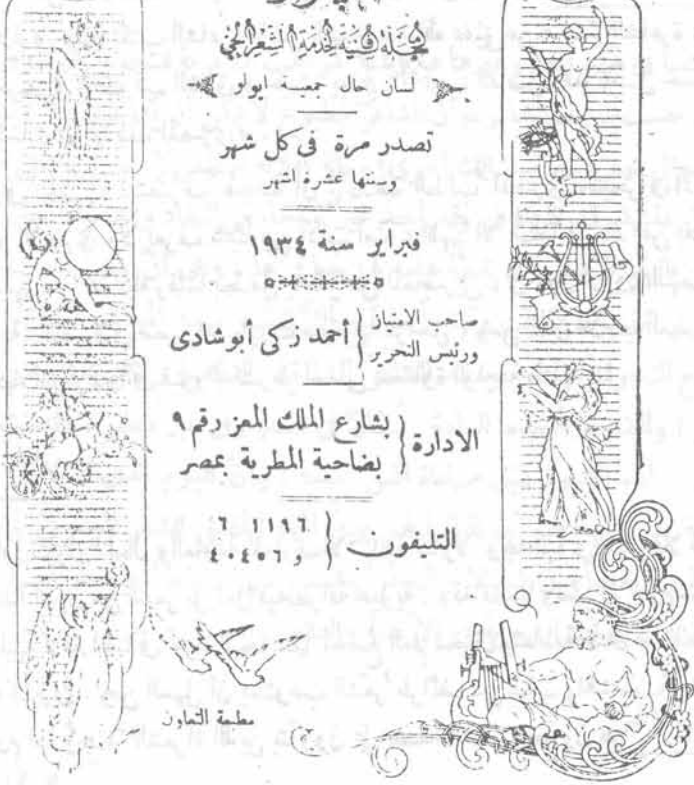 مجلة فنية لخدمة الشعر الحي
لسان حال جمعية ابولو
تصدر مرة فى كل شهر
وسنتها عشرة اشهر
فبراير سنة ١٩٣٤
صاحب الامتياز
ورئيس التحرير { أحمد زكى أبو شادى
الادارة { بشارع الملك المعز رقم ٩
بضاحية المطرية بمصر
التليفون { ٦ ١١٩٦
و ٤٠٤٥٦
مطبعة التعاون